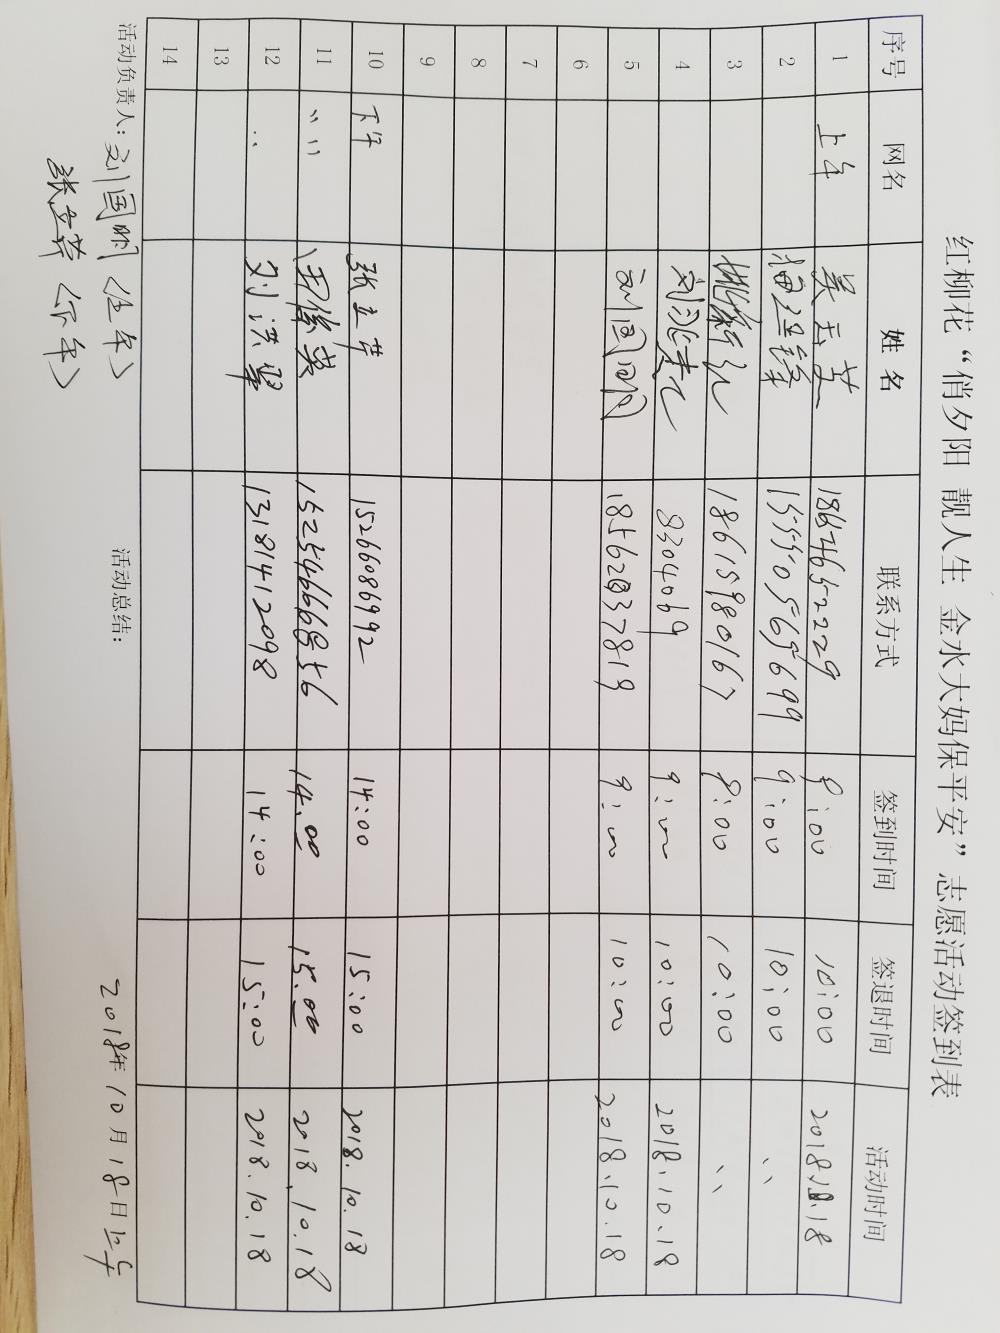 红柳花“俏夕阳 靓人生 金水大妈保平安”志愿活动签到表
序号 网名 姓名 联系方式 签到时间 签退时间 活动时间
1 上午 吴玉英 18646652229 9:00 10:00 2018.10.18
2 15550565699 9:00 10:00 〃
3 18615980167 9:00 10:00 〃
4 8304069 9:00 10:00 2018.10.18
5 刘国明 18562037819 9:00 10:00 2018.10.18
6
7
8
9
10 下午 张立芹 15266086992 14:00 15:00 2018.10.18
11 〃 〃 田俊英 15254666856 14:00 15:00 2018.10.18
12 〃 刘洪翠 13181412098 14:00 15:00 2018.10.18
13
14
活动负责人：刘国明（上午） 活动总结： 2018年10月18日上午
张立芹（下午）